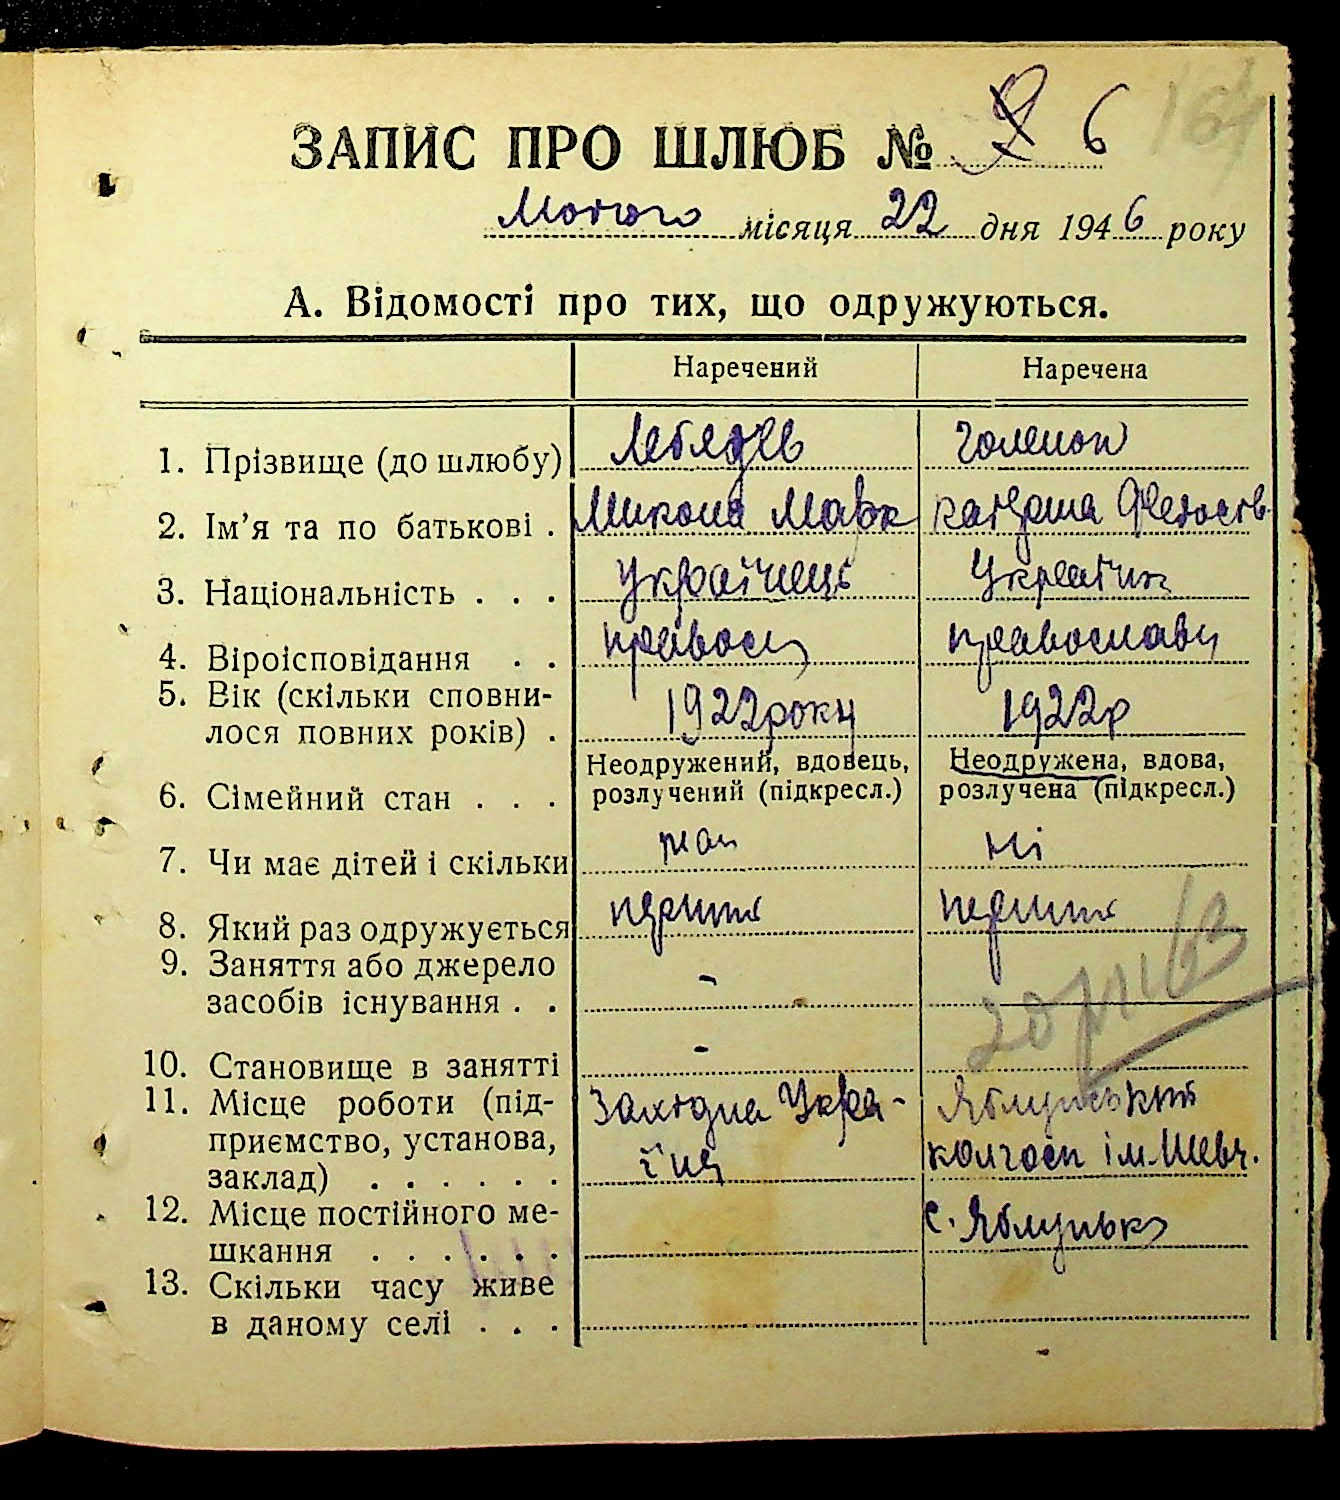 164
ЗАПИС ПРО ШЛЮБ № 6
Лютого місяця 22 дня 1946 року
А. Відомості про тих, що одружуються.
Наречений Наречена
1. Прізвище (до шлюбу) Лебядєв
2. Ім'я та по батькові . Микола Марк Катерина Федосєєв
3. Національність . . . Українець Українк
4. Віроісповідання . . правосл православн
5. Вік (скільки сповни-
лося повних років) . 1922 року 1922 р
Неодружений, вдовець, Неодружена, вдова,
6. Сімейний стан . . . розлучений (підкресл.) розлучена (підкресл.)
7. Чи має дітей і скільки ні
8. Який раз одружується перший перший
9. Заняття або джерело
засобів існування . . -
10. Становище в занятті -
11. Місце роботи (під- Західна Укра- Яблунський
приємство, установа, їна колгосп ім. Шевч.
заклад) . . . . . .
12. Місце постійного ме- с. Яблунька
шкання . . . . . .
13. Скільки часу живе
в даному селі . . .